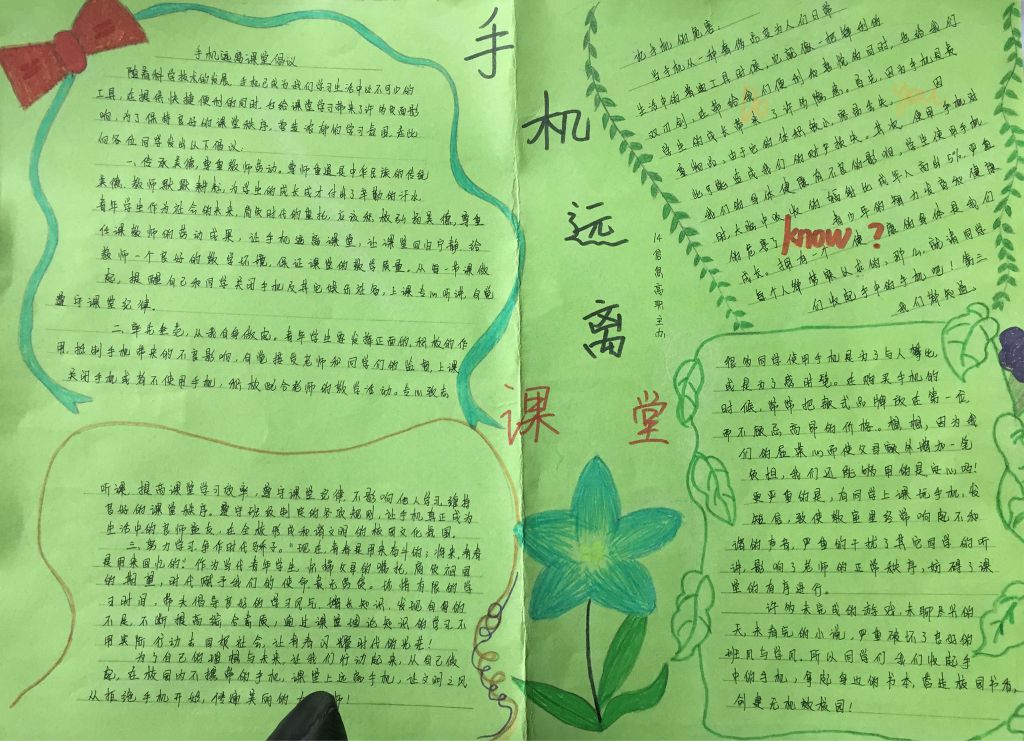 手机远离课堂倡议
随着科学技术的发展，手机已成为我们学习生活中必不可少的
工具，在提供快捷便利的同时，也给课堂学习带来了许多负面影
响，为了保持良好的课堂秩序，营造浓郁的学习氛围，在此
向各位同学发出以下倡议：
一、传承美德，尊重教师劳动。尊师重道是中华民族的传统
美德，教师默默耕耘，为学生的成长成才付出了辛勤的汗水。
青年学生作为社会的未来，肩负时代的重托，应该积极劝
任课教师的劳动成果，让手机远离课堂，让课堂回归宁静，给
教师一个良好的教学环境，保证课堂的教学质量，从每一节课做
起，提醒自己和同学关闭手机及其它娱乐设备，上课专心听讲，自觉
遵守课堂纪律。
二、率先垂范，从我自身做起。青年学生要发挥正面的、积极的作
用，抵制手机带来的不良影响，自觉接受老师和同学们的监督，上课
关闭手机或者不使用手机，积极配合老师的教学活动。专心致志
听课，提高课堂学习效率，遵守课堂纪律，不影响他人学习，维持
良好的课堂秩序。遵守班级制度的各项规则，让手机真正成为
生活中的良师益友，在全校形成和谐文明的校园文化氛围。
三、努力学习，争作时代骄子。“现在，青春是用来奋斗的；将来，青春
是用来回忆的。”作为当代青年学生，承梯父母的嘱托，肩负祖国
的期望，时代赋予我们的使命责无旁贷。珍惜有限的学
习时间，带头倡导良好的学习风气，增长知识，发现自身的
不足，不断提高综合素质，通过课堂理论知识的学习，不
用实际行动去回报社会，让青春闪耀时代的光芒！
为了自己的理想与未来，让我们行动起来，从自己做
起，在校园内不携带的手机，课堂上远离手机，让文明之风
从拒绝手机开始，传递美丽的
手
机
远
离
课 堂
14官高高职主办
论手机的危害：
当手机从一种奢侈品变为人们日常
生活中的普通工具时候，也就像一把锋利的
双刃剑，在带给我们便利和愉悦的同时，也给我们
学生的成长带来了许多隐患。首先，因为手机是贵
重物品，由于它的体积较小，容易丢失。因
此可能造成我们的财产损失。其次，使用手机对
我们的身体健康有不良的影响，学生使用手机
时大脑中吸收的辐射比成年人高出5%，严重
的危害了青少年的智力发育和健康
成长。拥有一个健康的身体是我们
每个人梦寐以求的，那么，就请同学
们收起手中的手机吧！第三
我们都知道。
know？
很多同学使用手机是为了与人攀比
或是为了赶时髦。在购买手机的
时候，常常把款式品牌放在第一位
而不顾忌高昂的价格。想想，因为我
们的虚荣心而使父母额外增加一笔
负担，我们还能够用的安心吗！
更严重的是，有同学上课玩手机，发
短信，致使教室里经常响起不和
谐的声音，严重的干扰了其它同学的听
讲，影响了老师的正常秩序，妨碍了课
堂的有序进行。
许多未完成的游戏，未聊完的
天，未看完的小说，严重破坏了良好的
班风与学风。所以同学们，我们收起手
中的手机，拿起身边的书本，营造校园书香，
创建无机放校园！